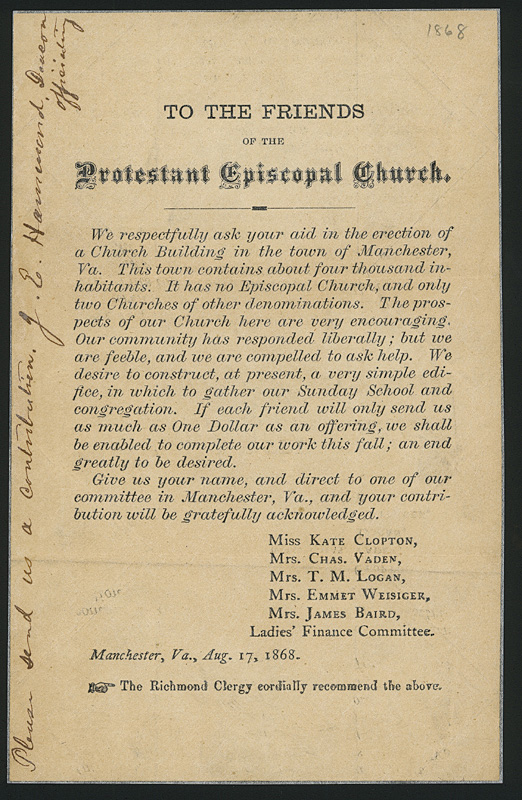 1868
TO THE FRIENDS
OF THE
Protestant Episcopal Church.
We respectfully ask your aid in the erection of
a Church Building in the town of Manchester,
Va. This town contains about four thousand in-
habitants. It has no Episcopal Church, and only
two Churches of other denominations. The pros-
pects of our Church here are very encouraging.
Our community has responded liberally; but we
are feeble, and we are compelled to ask help. We
desire to construct, at present, a very simple edi-
fice, in which to gather our Sunday School and
congregation. If each friend will only send us
as much as One Dollar as an offering, we shall
be enabled to complete our work this fall; an end
greatly to be desired.
Give us your name, and direct to one of our
committee in Manchester, Va., and your contri-
bution will be gratefully acknowledged.
Miss Kate Clopton,
Mrs. Chas. Vaden,
Mrs. T. M. Logan,
Mrs. Emmet Weisiger,
Mrs. James Baird,
Ladies' Finance Committee.
Manchester, Va., Aug. 17, 1868.
☞ The Richmond Clergy cordially recommend the above.
Please send us a contribution. J. E. Hammond, Deacon
officiating